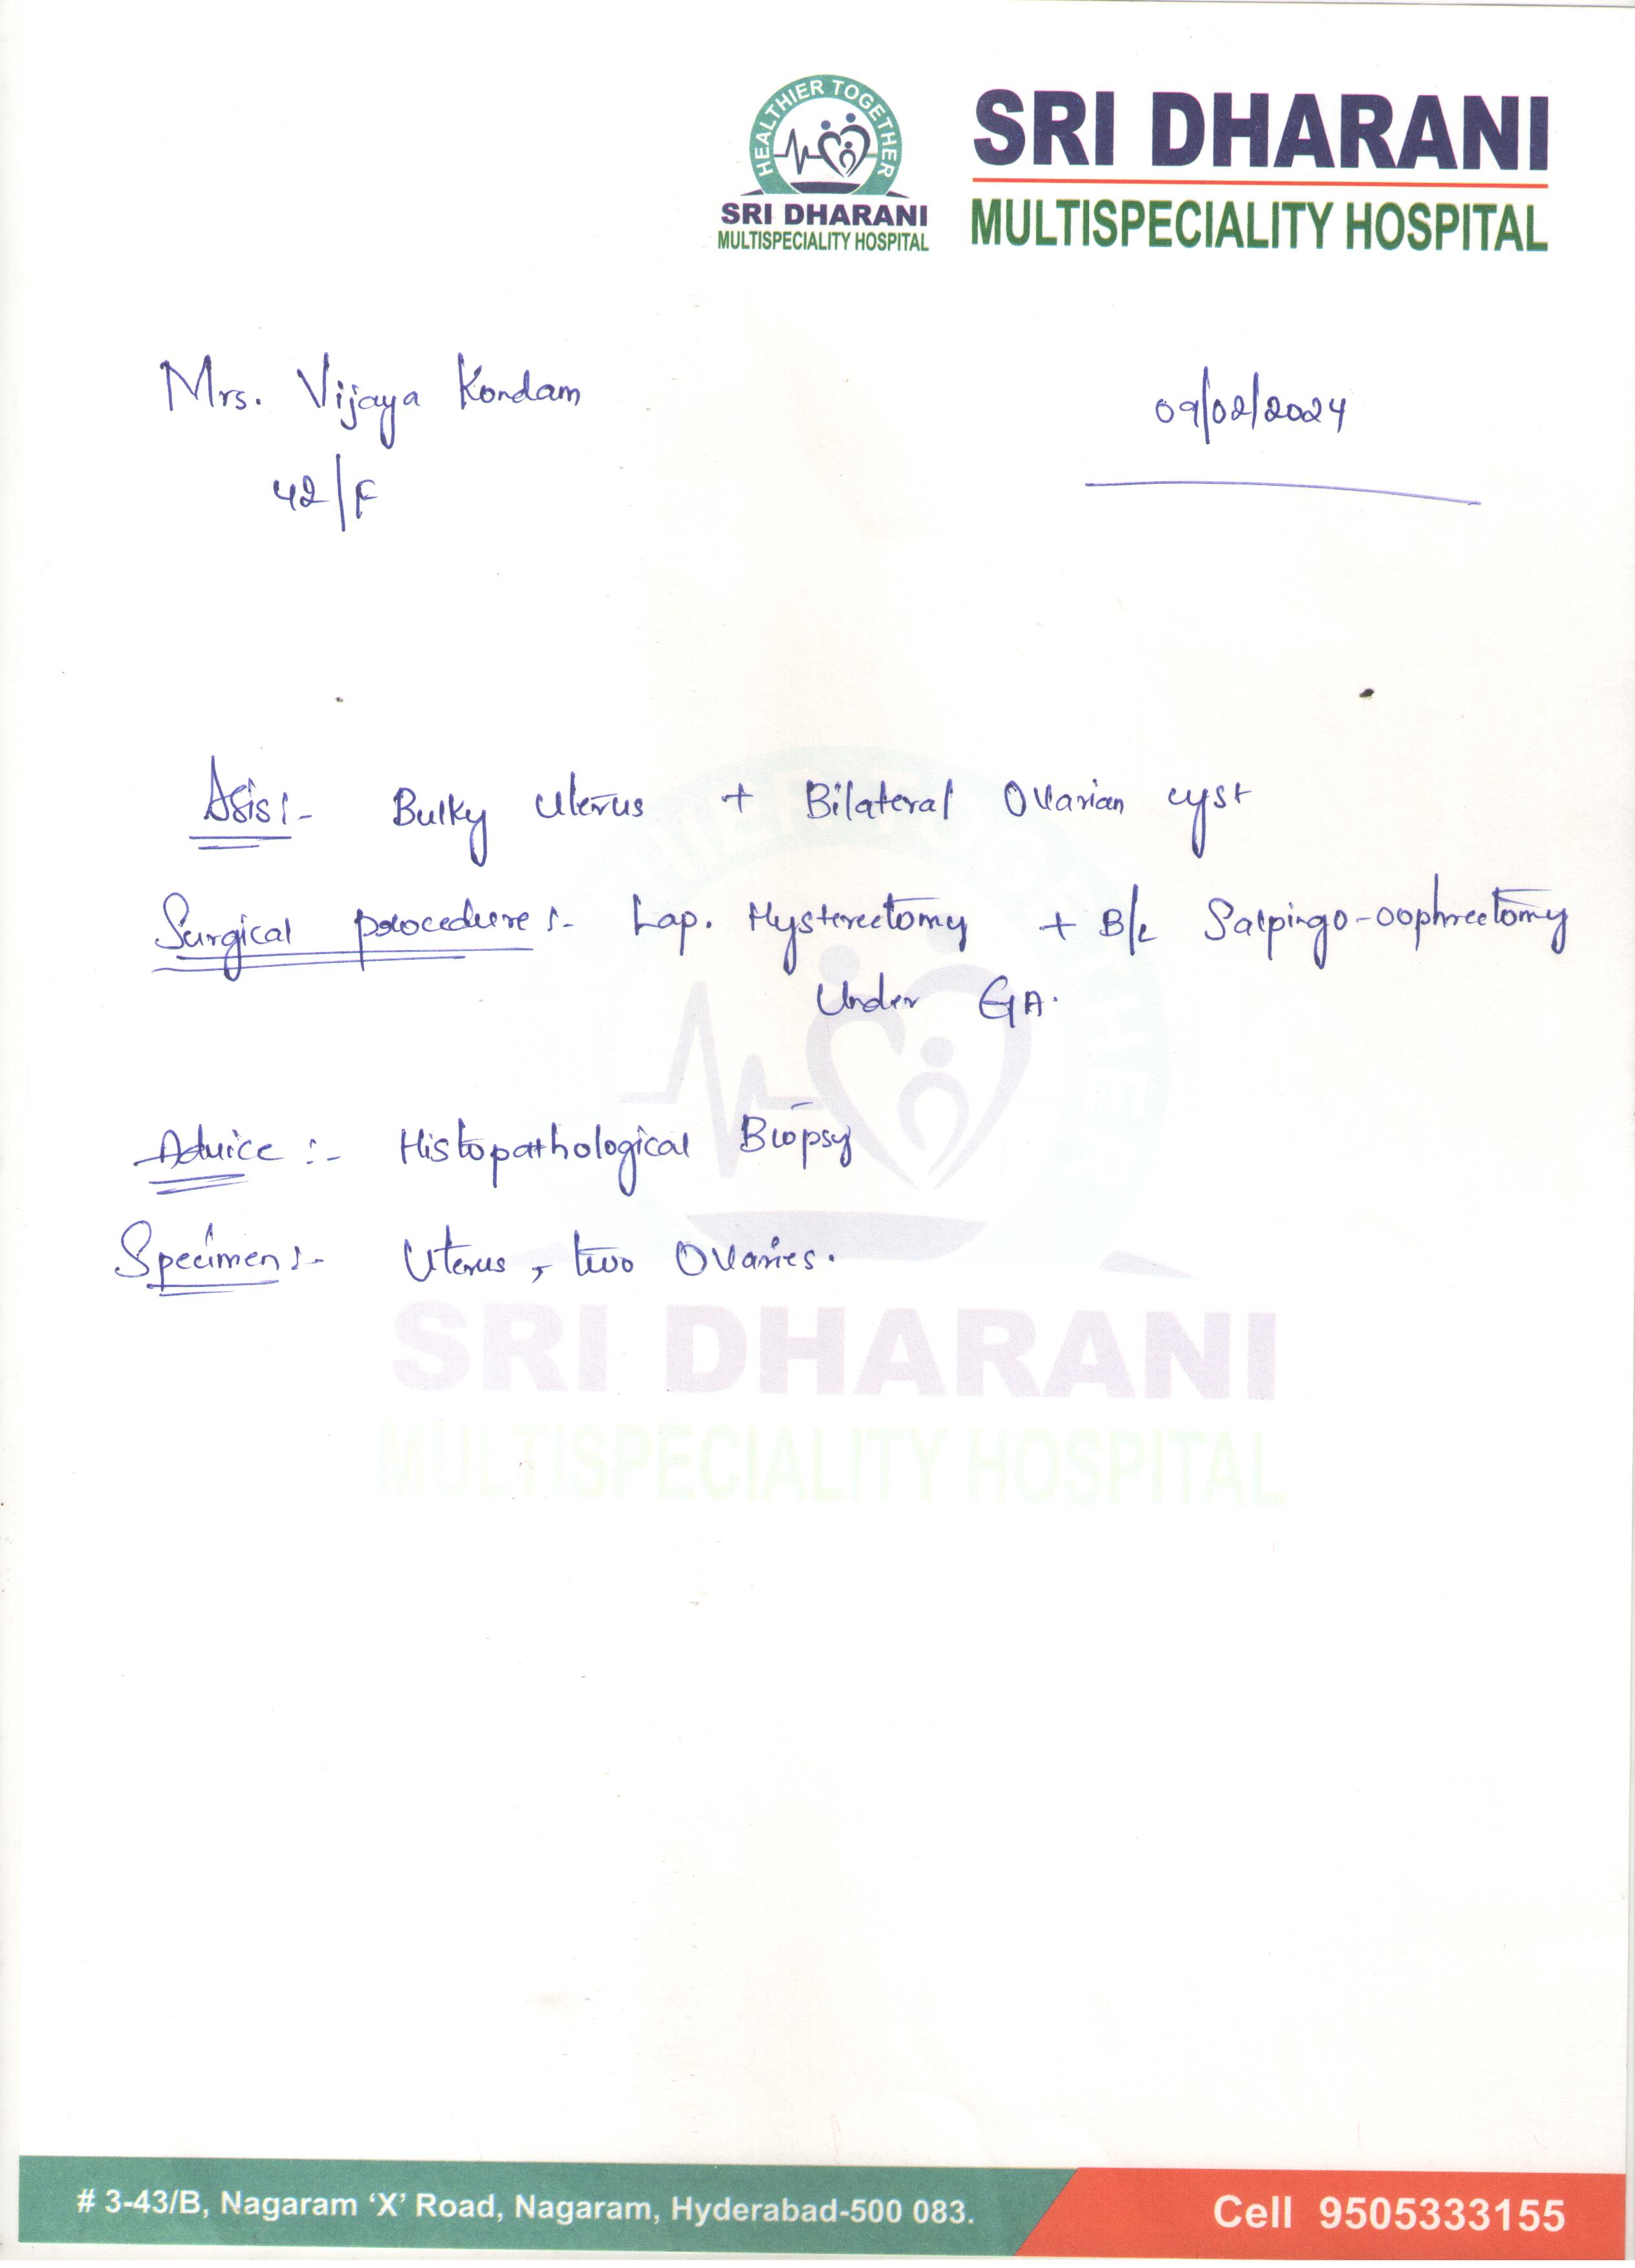 HEALTHIER TOGETHER
SRI DHARANI
MULTISPECIALITY HOSPITAL
SRI DHARANI
MULTISPECIALITY HOSPITAL
Mrs. Vijaya Kondam
09/02/2024
42/F
:- Bulky Uterus + Bilateral Ovarian cyst
Surgical procedure :- Lap. Hysterectomy + B/L Salpingo-oophrectomy
Under GA.
Advice :- Histopathological Biopsy
Specimen :- Uterus, two Ovaries.
SRI DHARANI
MULTISPECIALITY HOSPITAL
# 3-43/B, Nagaram ‘X’ Road, Nagaram, Hyderabad-500 083.
Cell 9505333155